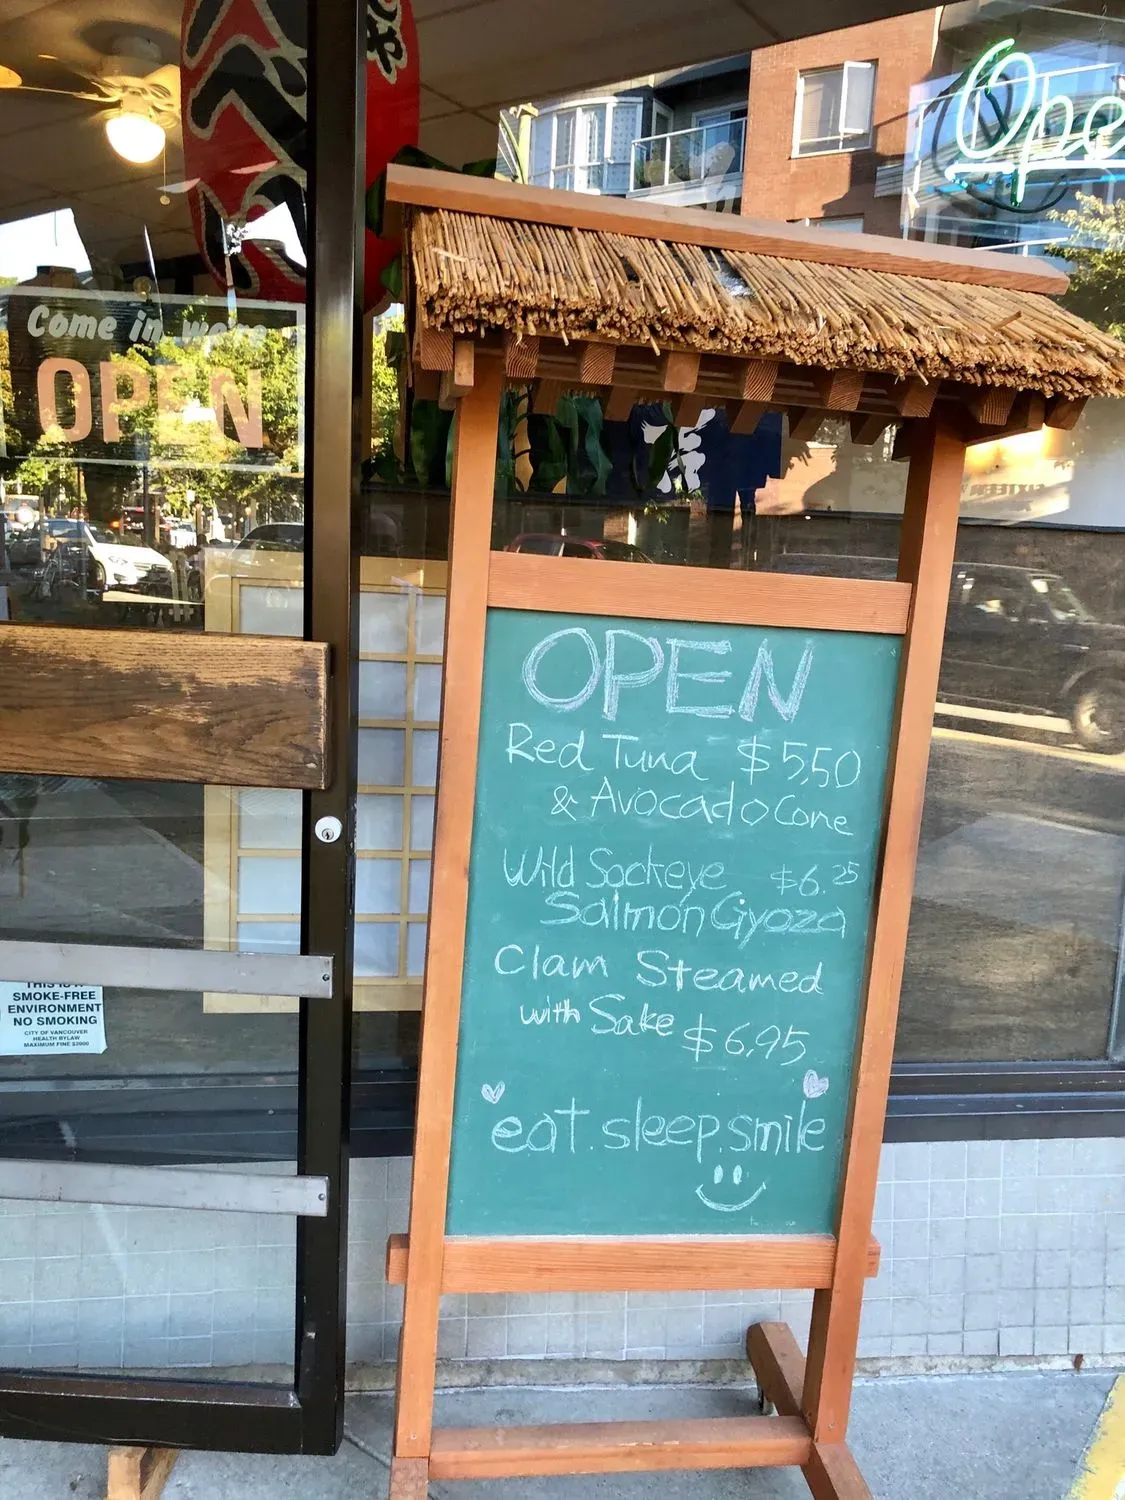 Open
Come in we're
OPEN
OPEN
Red Tuna $5.50
& Avocado Cone
Wild Sockeye $6.25
Salmon Gyoza
Clam Steamed
with Sake $6.95
eat.sleep.smile
THIS IS A
SMOKE-FREE
ENVIRONMENT
NO SMOKING
CITY OF VANCOUVER
HEALTH BYLAW
MAXIMUM FINE $2000